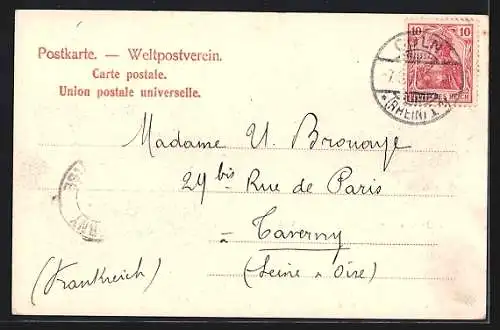 Postkarte. — Weltpostverein.
Carte postale.
Union postale universelle.
10 10
DEUTSCHES REICH
CÖLN
(RHEIN) 1
Madame U. Brouaye
24 bis Rue de Paris
à Taverny
(Seine & Oise)
(Frankreich)